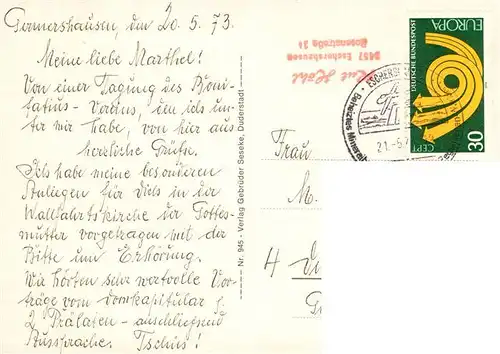 Germershausen, im 20.5.73.
Meine liebe Marthel!
Von einer Tagung des Boni-
fatius-Vereins, um ich un-
ter mir habe, von hier aus
herzliche Grüße.
Ich habe meine besonderen
Anliegen für Dich in der
Wallfahrtskirche der Gottes-
mutter vorgetragen mit der
Bitte um Erhörung.
Wir hörten sehr wertvolle Vor-
träge vom Domkapitular
2 Prälaten - anschließend
Aussprache. Tschüs!
Nr. 945 - Verlag Gebrüder Seseke, Duderstadt
Frau
M.
H
Rosenstraße 14
21.-5.7
EUROPA
DEUTSCHE BUNDESPOST
CEPT
30